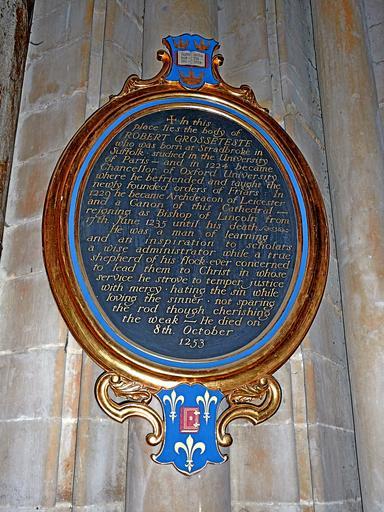 In this
place lies the body of
ROBERT GROSSETESTE
who was born at Stradbroke in
Suffolk · studied in the University
of Paris — and in 1224 became
Chancellor of Oxford University
where he befriended and taught the
newly founded orders of Friars · In
1229 he became Archdeacon of Leicester
and a Canon of this Cathedral —
reigning as Bishop of Lincoln from
17th June 1235 until his death
He was a man of learning
and an inspiration to scholars
a wise administrator while a true
shepherd of his flock · ever concerned
to lead them to Christ in whose
service he strove to temper justice
with mercy · hating the sin while
loving the sinner · not sparing
the rod though cherishing
the weak — He died on
8th. October
1253